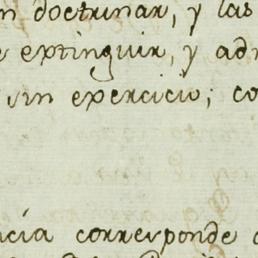 n doctrinar, y las
extinguir, y ad
sin exercicio; co
ncia corresponde